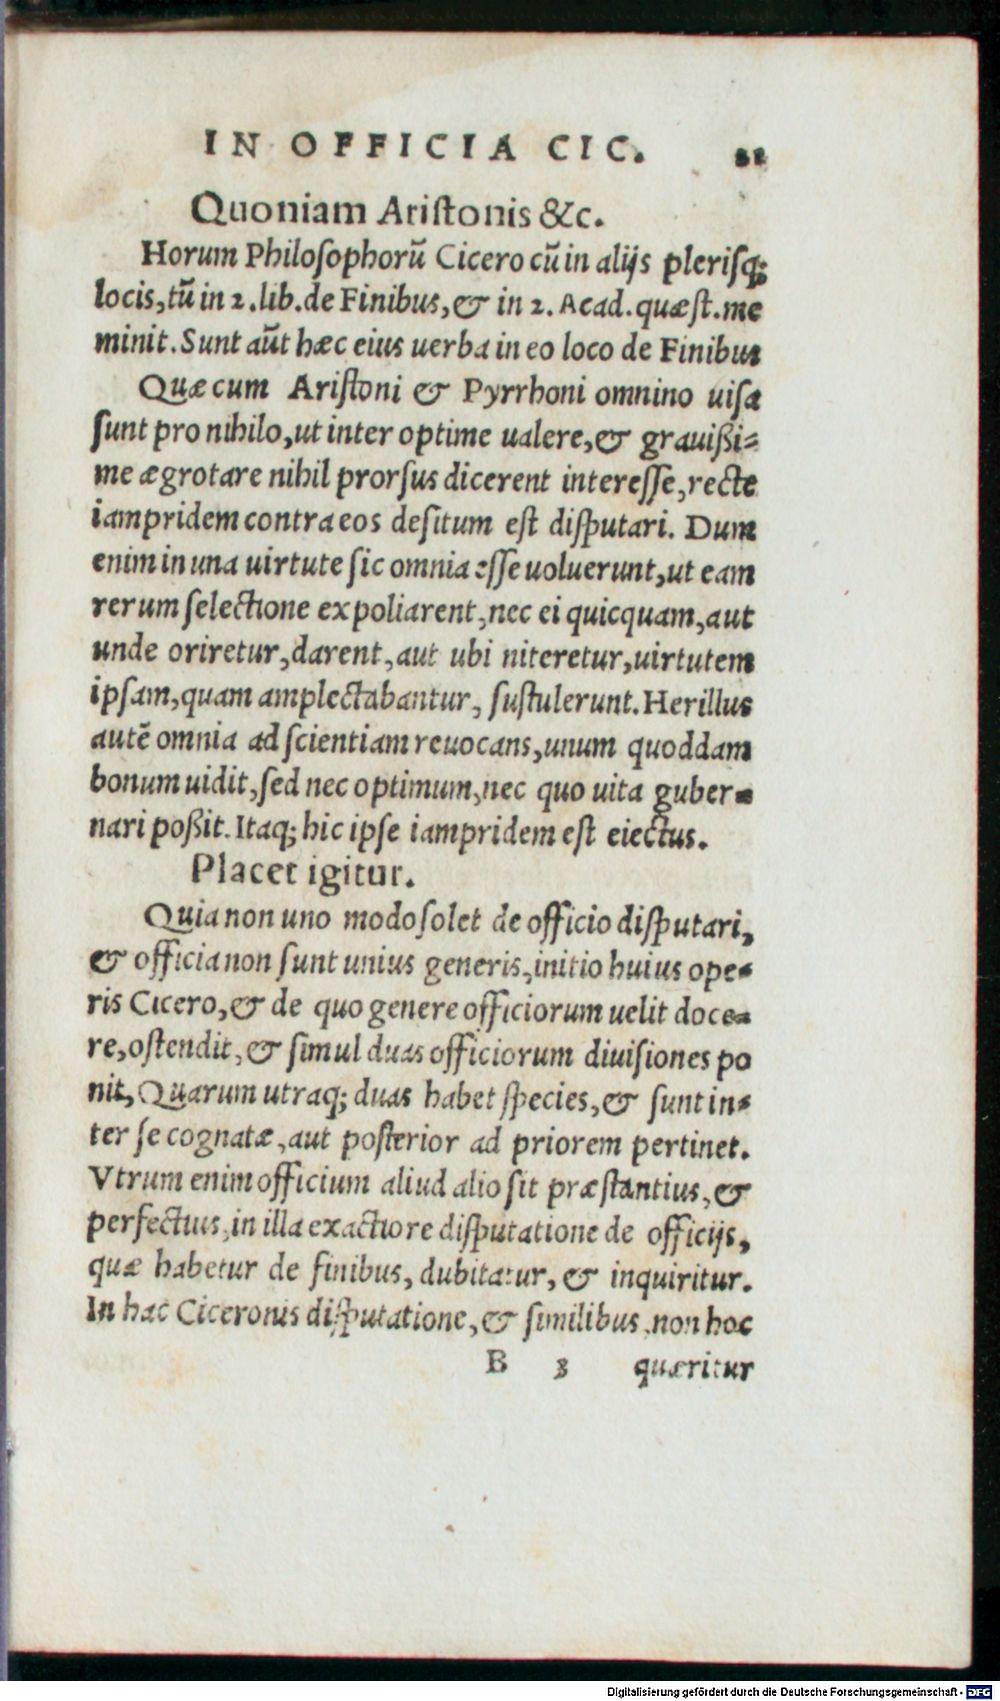 IN OFFICIA CIC. 21
Quoniam Ariſtonis &c.
Horum Philoſophorũ Cicero cũ in aliјs pleriſq;
locis, tũ in 2. lib. de Finibus, & in 2. Acad. quæſt. me
minit. Sunt aũt hæc eius uerba in eo loco de Finibus
Quæ cum Ariſtoni & Pyrrhoni omnino uiſa
ſunt pro nihilo, ut inter optime ualere, & grauißi=
me ægrotare nihil prorſus dicerent intereſſe, recte
iampridem contra eos deſitum eſt diſputari. Dum
enim in una uirtute ſic omnia eſſe uoluerunt, ut eam
rerum ſelectione expoliarent, nec ei quicquam, aut
unde oriretur, darent, aut ubi niteretur, uirtutem
ipſam, quam amplectabantur, ſuſtulerunt. Herillus
autẽ omnia ad ſcientiam reuocans, unum quoddam
bonum uidit, ſed nec optimum, nec quo uita guber=
nari poßit. Itaq; hic ipſe iampridem eſt eiectus.
Placet igitur.
Quia non uno modo ſolet de officio diſputari,
& officia non ſunt unius generis, initio huius ope=
ris Cicero, & de quo genere officiorum uelit doce=
re, oſtendit, & ſimul duas officiorum diuiſiones po
nit, Quarum utraq; duas habet ſpecies, & ſunt in=
ter ſe cognatæ, aut poſterior ad priorem pertinet.
Vtrum enim officium aliud alio ſit præſtantius, &
perfectius, in illa exactiore diſputatione de officijs,
quæ habetur de finibus, dubitatur, & inquiritur.
In hac Ciceronis diſputatione, & ſimilibus, non hoc
B 3 quæritur
Digitalisierung gefördert durch die Deutsche Forschungsgemeinschaft - DFG